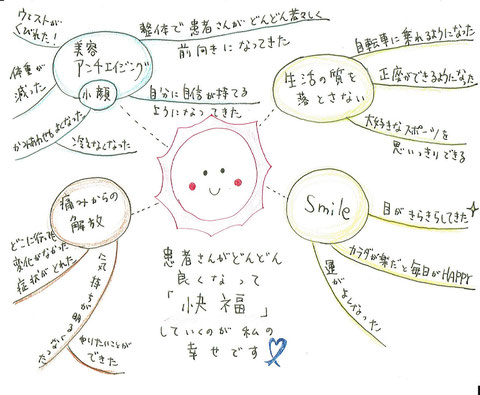 ウエストが
くびれた!
体重が
減った
美容
アンチエイジング
小顔
かみあわせもよくなった
冷えなくなった
整体で患者さんがどんどん若々しく
前向きになってきた
自分に自信が持てる
ようになってきた
生活の質を
落とさない
自転車に乗れるようになった
正座ができるようになった
大好きなスポーツを
思いっきりできる
痛みからの
解放
どこに行っても
変化がなかった
症状がとれた
気持ちが明るくなった
やりたいことが
できた
Smile
目がきらきらしてきた
カラダが楽だと毎日がHAPPY
運がよくなった!
患者さんがどんどん
良くなって
「快福」
していくのが私の
幸せです